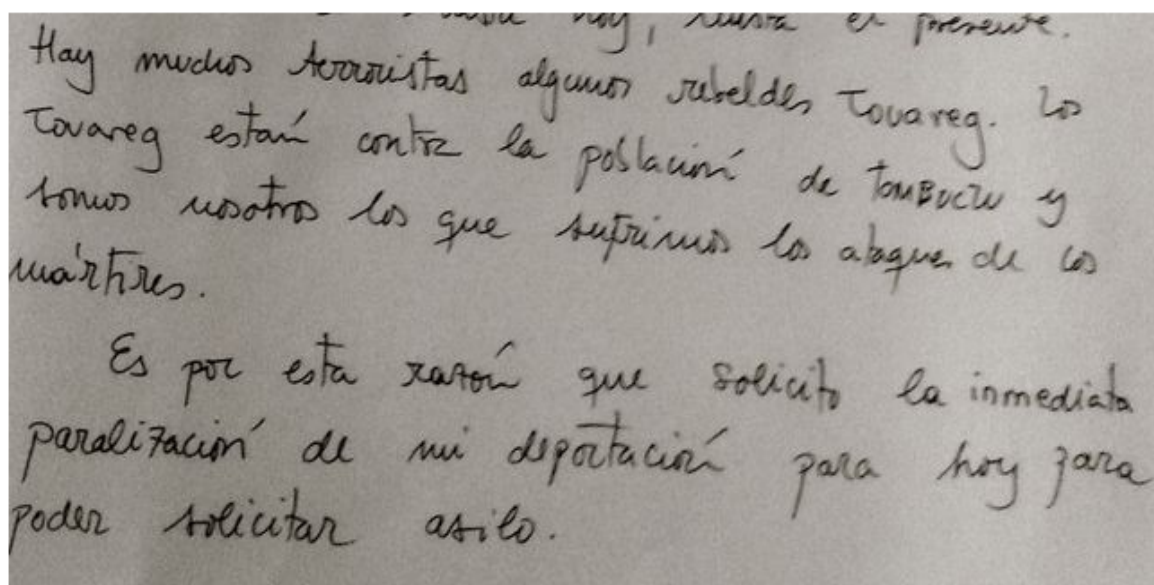 hoy, hasta el presente.
Hay muchos terroristas algunos rebeldes Touareg. Los
Touareg están contra la población de TomBuctu y
somos nosotros los que sufrimos los ataques de los
mártires.
Es por esta razón que solicito la inmediata
paralización de mi deportación para hoy para
poder solicitar asilo.